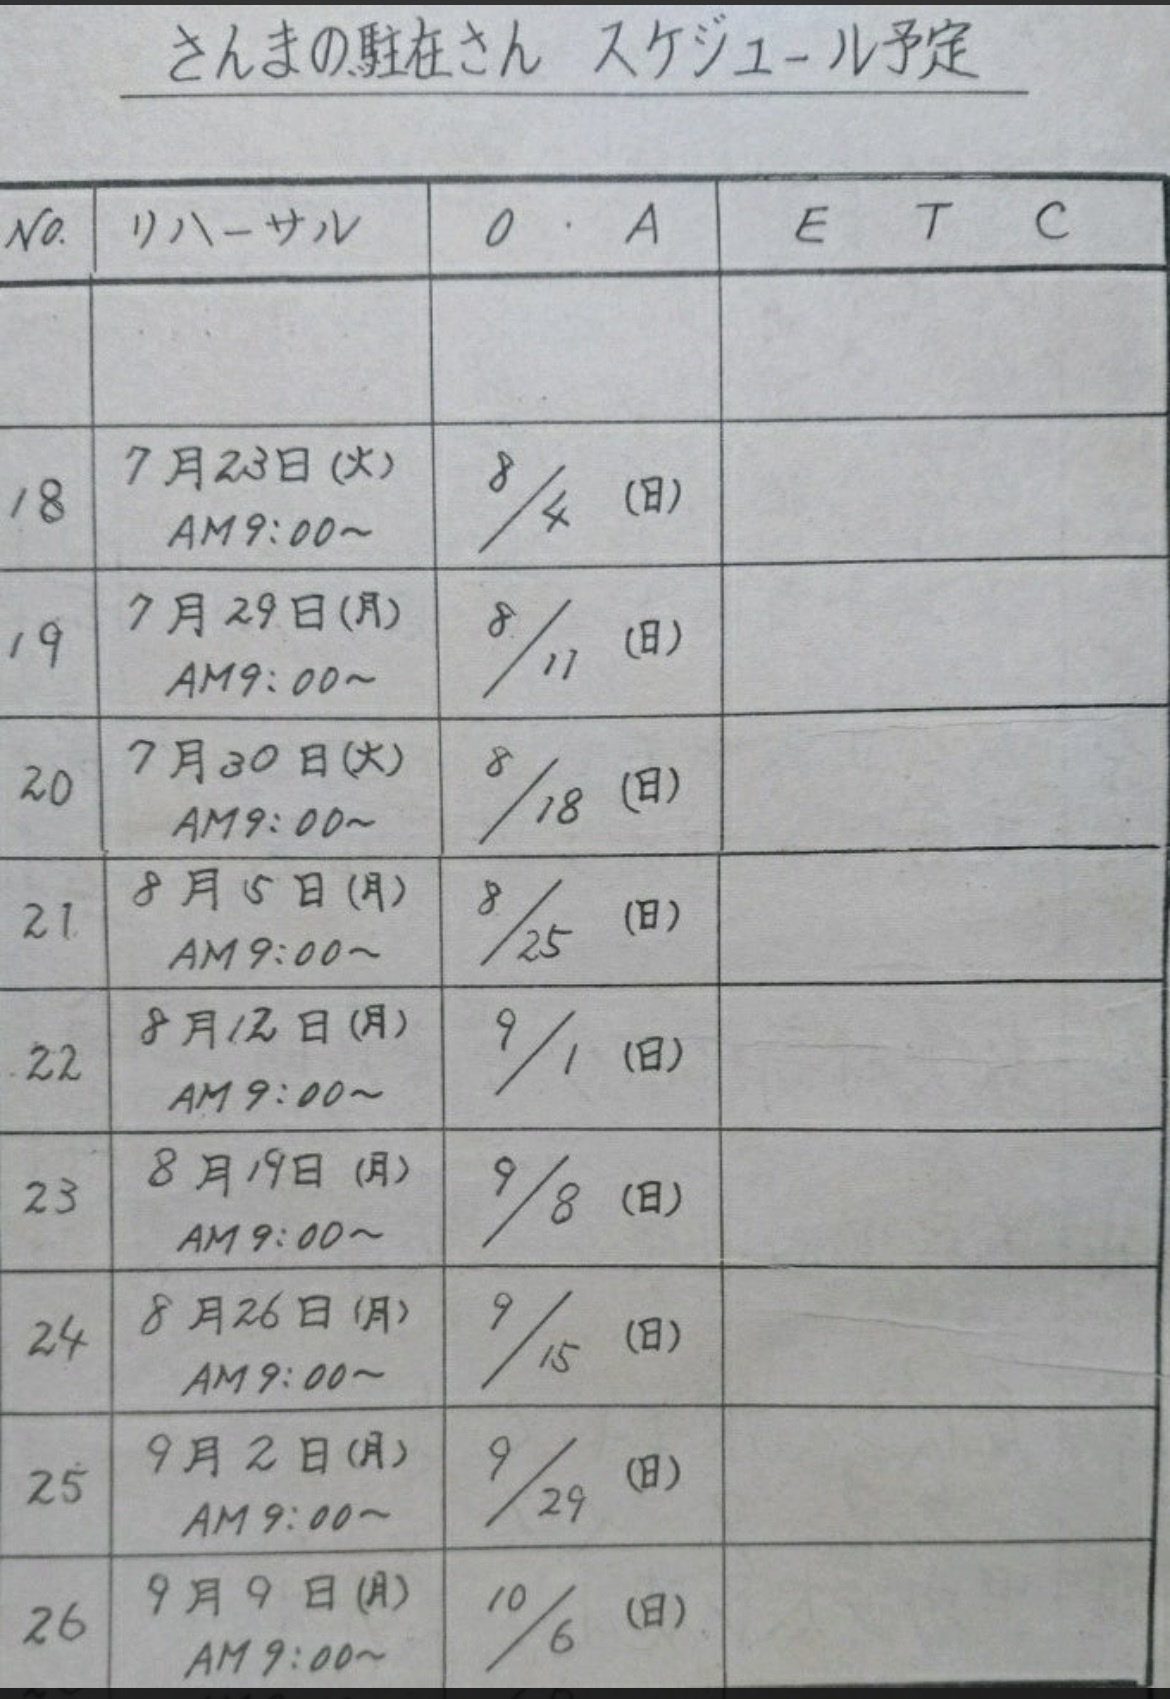 さんまの駐在さん スケジュール予定
NO. リハーサル O・A ETC
18 7月23日(火) AM9:00~ 8/4 (日)
19 7月29日(月) AM9:00~ 8/11 (日)
20 7月30日(火) AM9:00~ 8/18 (日)
21 8月5日(月) AM9:00~ 8/25 (日)
22 8月12日(月) AM9:00~ 9/1 (日)
23 8月19日(月) AM9:00~ 9/8 (日)
24 8月26日(月) AM9:00~ 9/15 (日)
25 9月2日(月) AM9:00~ 9/29 (日)
26 9月9日(月) AM9:00~ 10/6 (日)